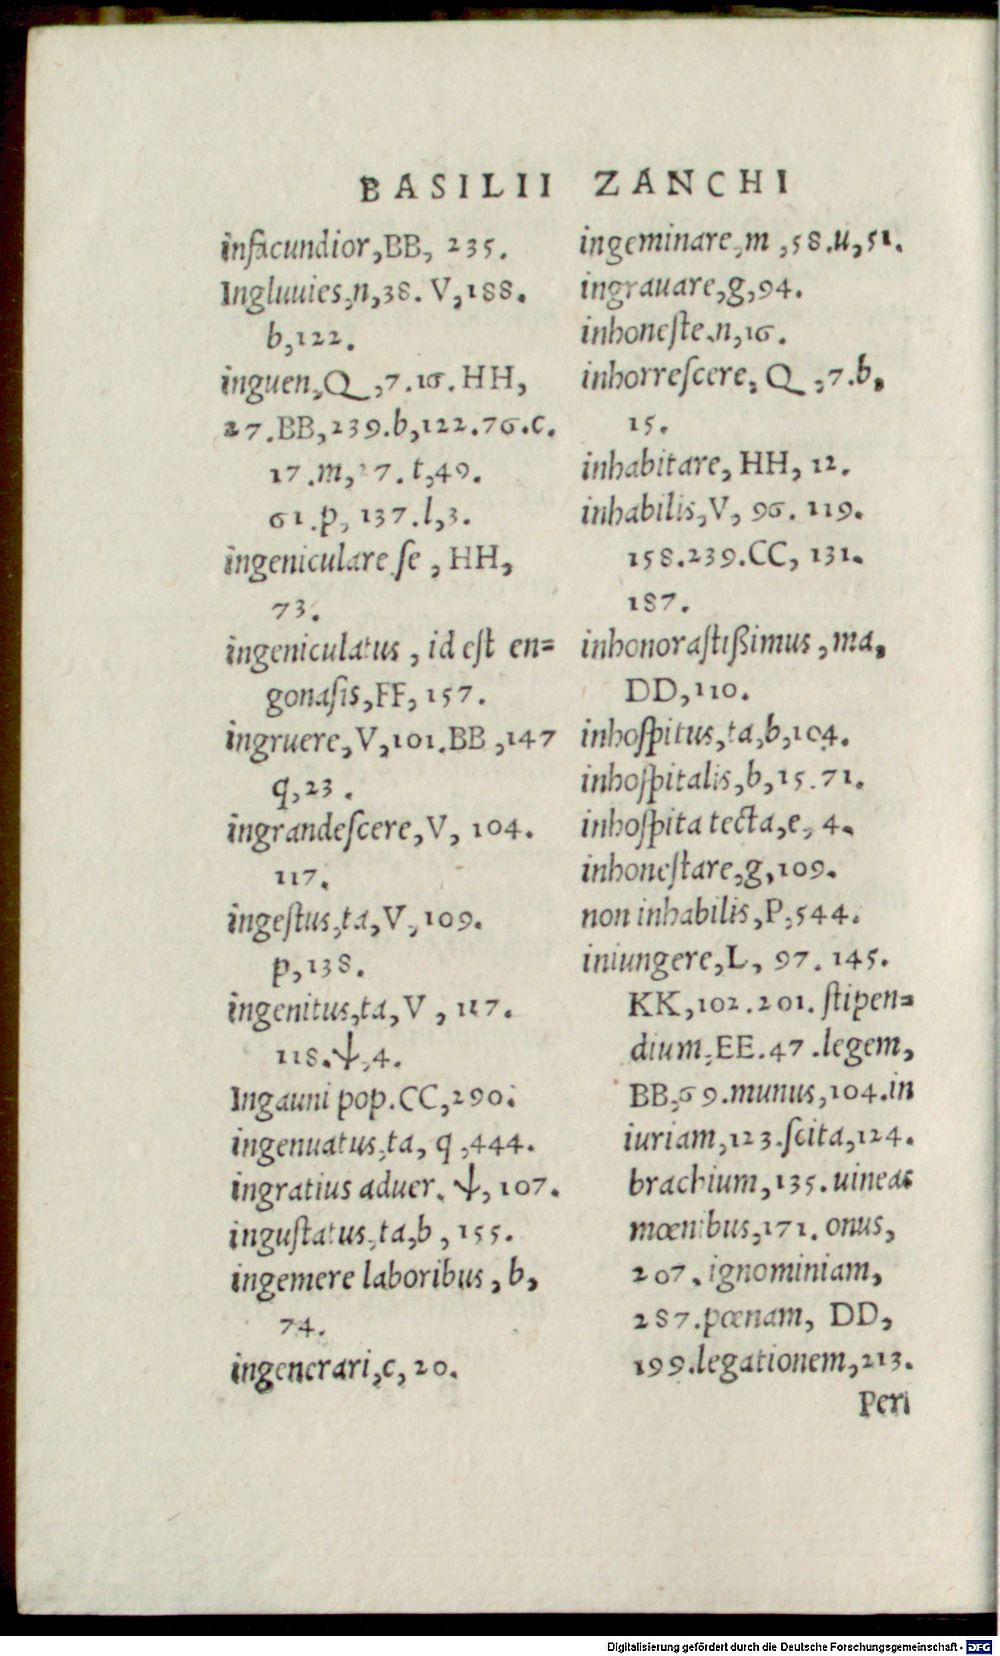 BASILII ZANCHI
infacundior,BB, 235.
Ingluuies,n,38. V,188.
b,122.
inguen,Q,7.16.HH,
27.BB,239.b,122.76.c.
17.m,27.t,49.
61.p, 137.l,3.
ingeniculare se, HH,
73.
ingeniculatus, id est en=
gonasis,FF, 157.
ingruere,V,101.BB,147
q,23.
ingrandescere,V, 104.
117.
ingestus,ta,V,109.
p,138.
ingenitus,ta,V, 117.
118.ψ,4.
Ingauni pop.CC,290.
ingenuatus,ta, q,444.
ingratius aduer. ψ, 107.
ingustatus,ta,b, 155.
ingemere laboribus, b,
74.
ingenerari,c, 20.
ingeminare,m,58.u,51.
ingrauare,g,94.
inhoneste,n,16.
inhorrescere, Q,7.b,
15.
inhabitare, HH, 12.
inhabilis,V, 96. 119.
158.239.CC, 131.
187.
inhonorastißimus, ma,
DD,110.
inhospitus,ta,b,104.
inhospitalis,b,15.71.
inhospita tecta,e, 4.
inhonestare,g,109.
non inhabilis,P,544.
iniungere,L, 97. 145.
KK,102.201. stipen=
dium,EE.47.legem,
BB,69.munus,104.in
iuriam,123.scita,124.
brachium,135.uineas
mœnibus,171. onus,
207. ignominiam,
287.pœnam, DD,
199.legationem,213.
Peri
Digitalisierung gefördert durch die Deutsche Forschungsgemeinschaft - DFG